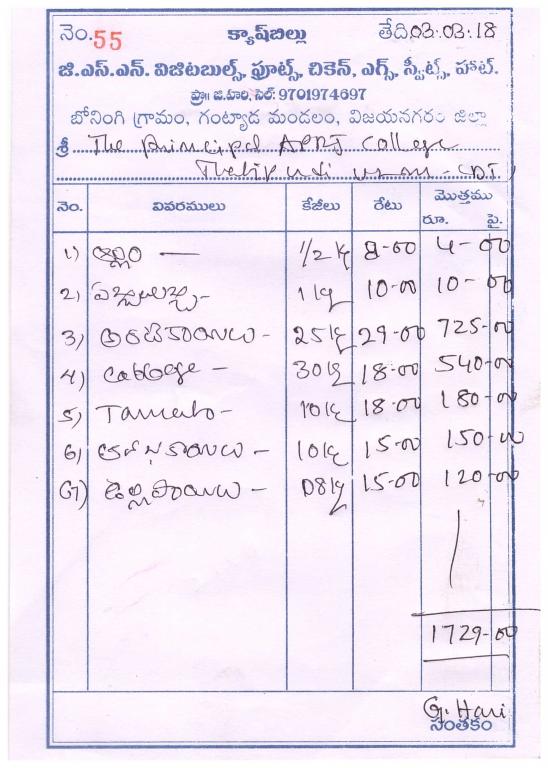 నెం. 55 క్యాష్‌బిల్లు తేది 03.03.18
జి.ఎస్.ఎన్. విజిటబుల్స్, ఫ్రూట్స్, చికెన్, ఎగ్స్, స్వీట్స్, హాట్.
ప్రొ॥ జి.హరి, సెల్: 9701974697
బోనంగి గ్రామం, గంట్యాడ మండలం, విజయనగరం జిల్లా
శ్రీ The Principal APRJ College
నెం. వివరములు కేజీలు రేటు మొత్తము
రూ. పై.
1) అల్లం — 1/2 kg 8-00 4-00
2) 1 kg 10-00 10-00
3) అరటికాయలు - 25 kg 29-00 725-00
4) Cabbage - 30 kg 18-00 540-00
5) Tamoto - 10 kg 18-00 180-00
6) 10 kg 15-00 150-00
7) ఉల్లిపాయలు - 08 kg 15-00 120-00
1729-00
G. Hari
సంతకం